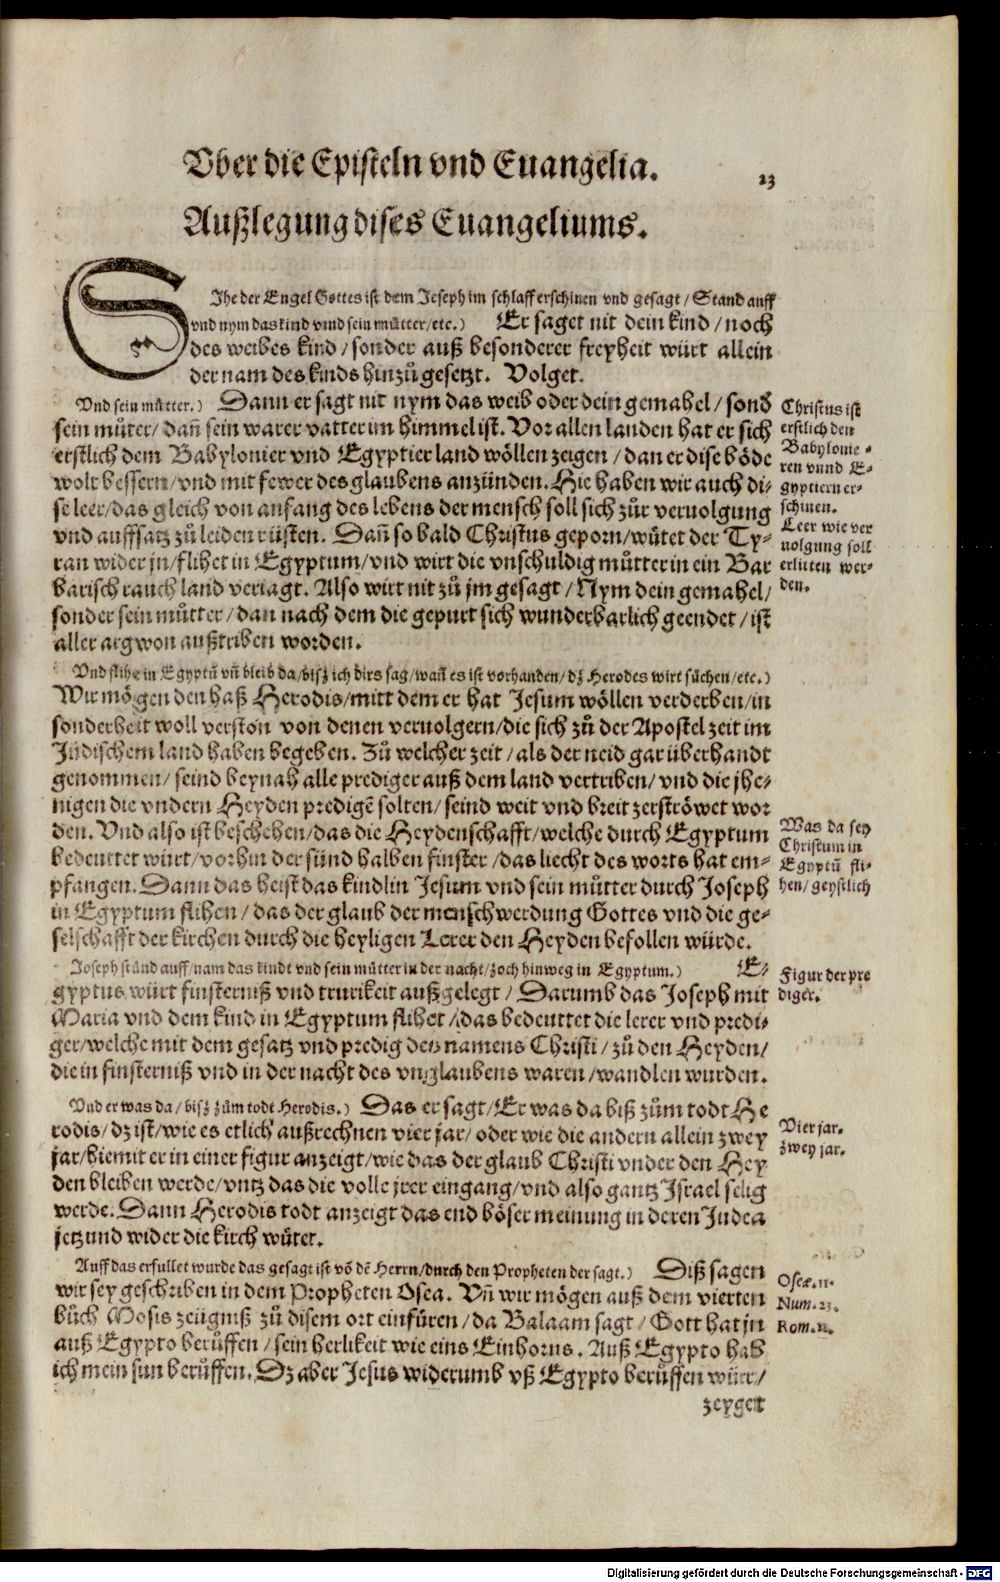 Vber die Episteln vnd Euangelia.
23
Außlegung dises Euangeliums.
SIhe der Engel Gottes ist dem Joseph im schlaff erschinen vnd gesagt / Stand auff
vnd nym das kind vnnd sein můtter / etc.) Er saget nit dein kind / noch
des weibes kind / sonder auß besonderer freyheit würt allein
der nam des kinds hinzů gesetzt. Volget.
Vnd sein můtter.) Dann er sagt nit nym das weib oder dein gemahel / sond
sein můter / dañ sein warer vatter im himmel ist. Vor allen landen hat er sich
erstlich dem Babylonier vnd Egyptier land wöllen zeigen / dan er dise böde
wolt bessern / vnd mit fewer des glaubens anzünden. Hie haben wir auch di-
se leer / das gleich von anfang des lebens der mensch soll sich zůr veruolgung
vnd auffsatz zů leiden rüsten. Dañ so bald Christus geporn / wütet der Ty-
ran wider jn / flihet in Egyptum / vnd wirt die vnschuldig můtter in ein Bar
barisch rauch land veriagt. Also wirt nit zů jm gesagt / Nym dein gemahel /
sonder sein můtter / dan nach dem die gepurt sich wunderbarlich geendet / ist
aller argwon außtriben worden.
Christus ist
erstlich den
Babylonie-
ren vnnd E-
gyptiern er-
schinen.
Leer wie ver
uolgung soll
erlitten wer-
den.
Vnd flihe in Egyptū vñ bleib da / bisz ich dirs sag / wañ es ist vorhanden / dz Herodes wirt sůchen / etc.)
Wir mögen den haß Herodis / mitt dem er hat Jesum wöllen verderben / in
sonderheit woll verston von denen veruolgern / die sich zů der Apostel zeit im
Jüdischem land haben begeben. Zů welcher zeit / als der neid gar überhandt
genommen / seind beynah alle prediger auß dem land vertriben / vnd die jhe-
nigen die vndern Heyden predigē solten / seind weit vnd breit zerströwet wor
den. Vnd also ist beschehen / das die Heydenschafft / welche durch Egyptum
bedeuttet würt / vorhin der sünd halben finster / das liecht des worts hat em-
pfangen. Dann das heist das kindlin Jesum vnd sein můtter durch Joseph
in Egyptum flihen / das der glaub der menschwerdung Gottes vnd die ge-
selschafft der kirchen durch die heyligen Lerer den Heyden befollen würde.
Was da sey
Christum in
Egyptū fli-
hen / geystlich
Joseph stůnd auff / nam das kindt vnd sein můtter in der nacht / zoch hinweg in Egyptum.) E-
gyptus würt finsterniß vnd trurikeit außgelegt / Darumb das Joseph mit
Maria vnd dem kind in Egyptum flihet / das bedeuttet die lerer vnd predi-
ger / welche mit dem gesatz vnd predig des namens Christi / zů den Heyden /
die in finsterniß vnd in der nacht des vnglaubens waren / wandlen wurden.
Figur der pre
diger.
Vnd er was da / bisz zům todt Herodis.) Das er sagt / Er was da biß zům todt He
rodis / dz ist / wie es etlich außrechnen vier jar / oder wie die andern allein zwey
jar / hiemit er in einer figur anzeigt / wie das der glaub Christi vnder den Hey
den bleiben werde / vntz das die volle jrer eingang / vnd also gantz Israel selig
werde. Dann Herodis todt anzeigt das end böser meinung in deren Judea
jetzund wider die kirch wüter.
Vier jar.
zwey jar.
Auff das erfullet wurde das gesagt ist vō dē Herrn / durch den Propheten der sagt.) Diß sagen
wir sey geschriben in dem Propheten Osea. Vñ wir mögen auß dem vierten
bůch Mosis zeügniß zů disem ort einfüren / da Balaam sagt / Gott hat jn
auß Egypto berůffen / sein herlikeit wie eins Einhorns. Auß Egypto hab
ich mein sun berůffen. Dz aber Jesus widerumb vß Egypto berůffen würt /
Oseæ. 11.
Num. 23.
Rom. 11.
zeyget
Digitalisierung gefördert durch die Deutsche Forschungsgemeinschaft - DFG